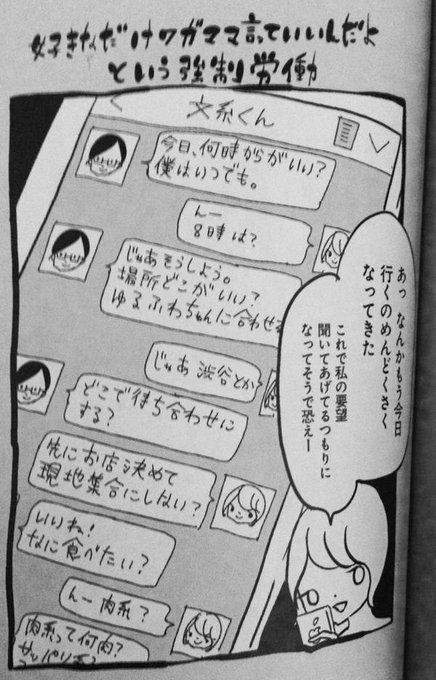 好きなだけワガママ言っていいんだよ
という強制労働
文系くん
今日、何時からがいい?
僕はいつでも。
んー
8時は?
じゃあそうしよう。
場所どこがいい?
ゆるふわちゃんに合わせ
じゃあ 渋谷とか
どこで待ち合わせに
する?
先にお店決めて
現地集合にしない?
いいね!
なに食べたい?
んー 肉系?
肉系って何肉?
サッパリ系?
あっ なんかもう今日
行くのめんどくさく
なってきた
これで私の要望
聞いてあげてるつもりに
なってそうで恐えー